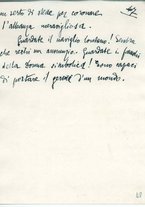 un serto di stelle per coronare
l'alleanza meravigliosa.
Guardate il naviglio lontano! Sembra
che rechi un annunzio. Guardate i fianchi
della donna simbolica! Sono capaci
di portare il germe d'un mondo.